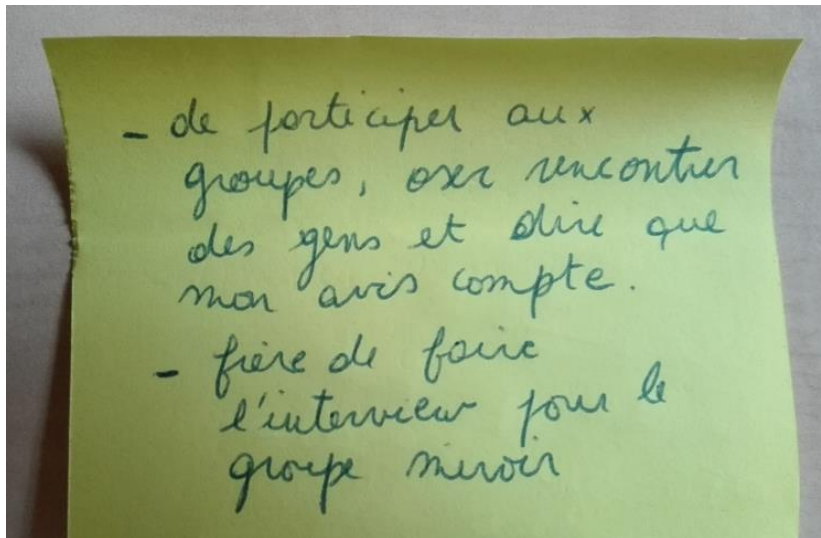 - de participer aux
groupes, oser rencontrer
des gens et dire que
mon avis compte.
- fière de faire
l'interview pour le
groupe miroir